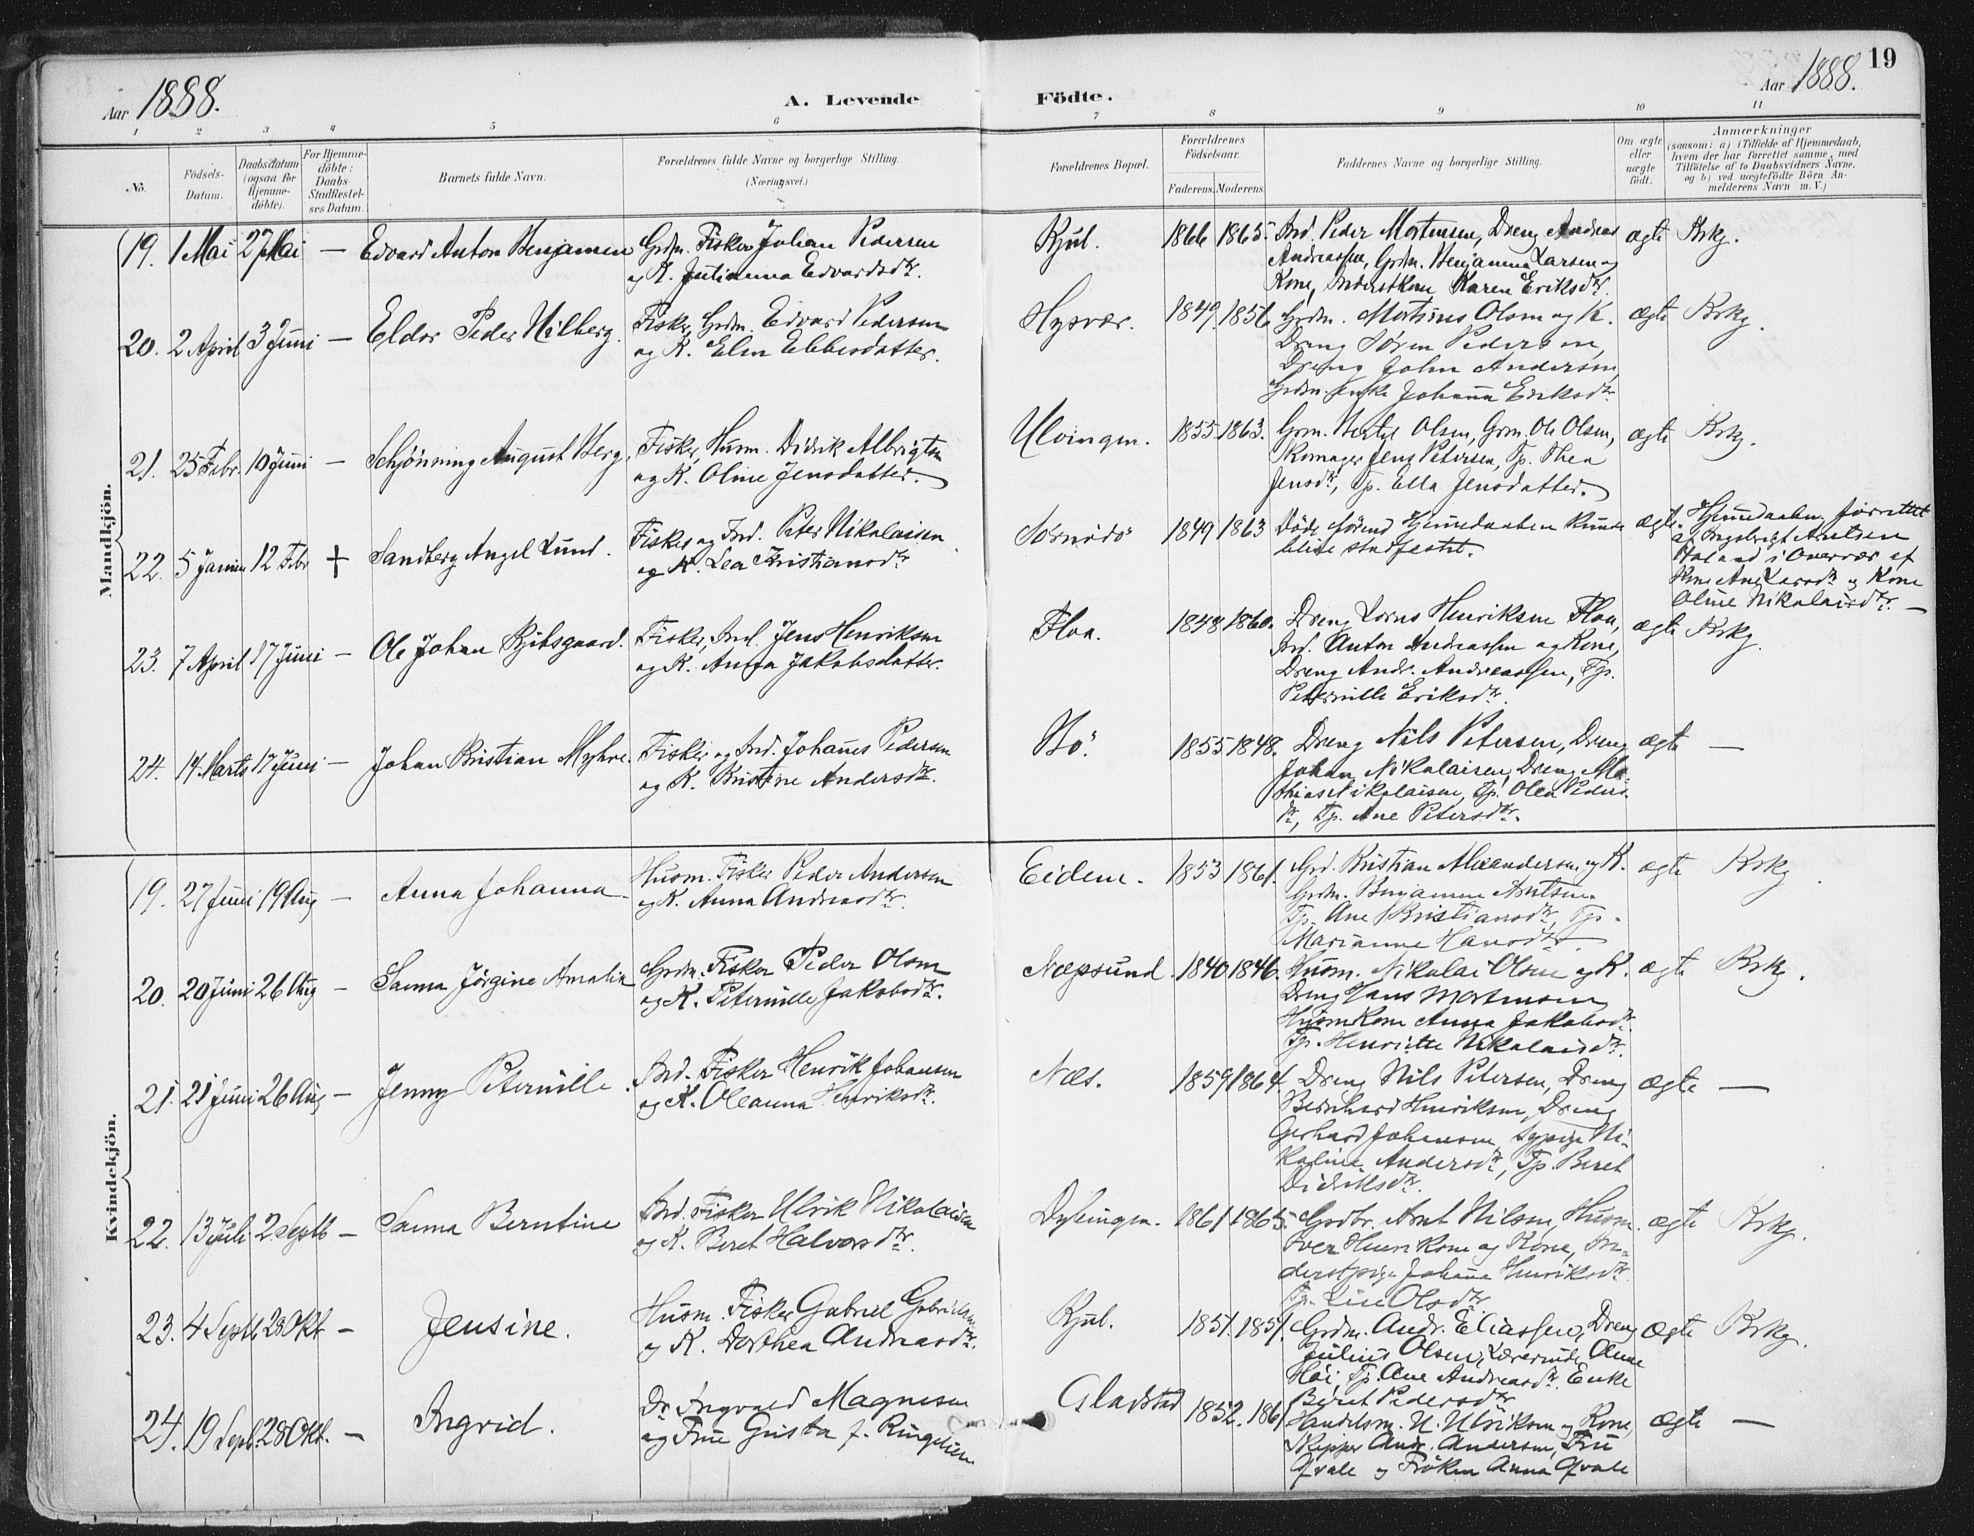 19
Aar 1888.
A. Levende
Födte.
Aar 1888.
1 2 3 4 5 6 7 8 9 10 11
No.
Födsels-
Datum.
Daabsdatum
(ogsaa for
Hjemme-
döbte).
For Hjemme-
döbte:
Daabs-
Stadfæstel-
ses Datum.
Barnets fulde Navn.
Forældrenes fulde Navne og borgerlige Stilling.
(Næringsvei.)
Forældrenes Bopæl.
Forældrenes
Födselsaar.
Faderens. Moderens.
Faddernes Navne og borgerlige Stilling.
Om ægte
eller
uægte
födt.
Anmærkninger
(saasom: a) i Tilfælde af Hjemmedaab,
hvem der har forrettet samme, med
Tilföielse af to Daabsvidners Navne,
og b) ved uægtefödte Börn An-
melderens Navn m. V.)
Mandkjön.
19. 1 Mai 27 Mai — Edvard Anton Benjamin Grdm. Fisker Johan Pedersen
og K. Julianna Edvardsdtr.
Kjul. 1866 1865. Ind. Peder Mortensen, Dreng Andreas
Andreassen, Grdm. Benjamin Larsen og
Kone, Inderstkone Karen Eriksdtr.
ægte Krkg.
20. 2 April 3 Juni — Eldor Peder Hilberg. Fisker, Grdm. Edvard Pedersen
og K. Elen Ebbesdatter.
Hysvær. 1849. 1856. Grdm. Martinus Olsen og K.
Dreng Søren Pedersen,
Dreng John Andersen,
Grdm. enke Johanna Eriksdtr.
ægte Krkg.
21. 25 Febr. 10 Juni — Schjønning August Berg. Fisker, Husm. Didrik Albrigtsen
og K. Oline Jensdatter.
Ulvingen. 1855. 1863. Grm. Bertel Olsen, Grm. Ole Olsen,
Skomager Jens Petersen, Tp. Thea
Jensdtr, Tp. Ella Jensdatter.
ægte Krkg.
22. 5 Januar 12 Febr † Sandberg Angel Lund. Fisker og Ind. Peter Nikolaisen
og K. Lea Kristiansdtr
1849 1863 Døde førend Hjemmedaaben kunde
blive stadfæstet.
ægte. Hjemmedaaben forrettet
af Ingebrigt Arntsen
i Overvær af
Kone Ane Larsdtr og Kone
Oline Nikolaisdtr.
23. 7 April 17 Juni — Ole Johan Ribsgaard. Fisker, Ind. Jens Henriksen
og K. Anna Jakobsdatter.
Floa. 1848 1860. Dreng Lorns Henriksen Floa,
Ind. Anton Andreassen og Kone,
Dreng Andr. Andreassen, Tp.
Peternille Eriksdtr.
ægte Krkg.
24. 14 Marts 17 Juni — Johan Kristian Myhre. Fisker og Ind. Johannes Pedersen
og K. Kristine Andersdtr.
Bø. 1855 1848. Dreng Nils Petersen, Dreng
Johan Nikolaisen, Dreng Ma-
thias Nikolaisen, Tp. Olea Peders-
dtr, Tp. Ane Petersdtr.
ægte —
Kvindekjön.
19. 27 Juni 19 Aug — Anna Johanna Husm. Fisker Peder Andersen
og K. Anna Andreasdtr.
Eidem. 1853 1861. Grd. Kristian Alexandersen og K.
Grdm. Benjamin Arntsen
Tp. Ane Kristiansdtr, Tp.
Marianne Hansdtr.
ægte Krkg.
20. 20 Juni 26 Aug — Sanna Jørgine Amalia Grdm. Fisker Peder Olsen
og K. Peternille Jakobsdtr.
Næpsund. 1840 1846. Husm. Nikolai Olsen og K.
Dreng Hans Mortensen
Husm Kone Anna Jakobsdtr.
Tp. Henriette Nikolaisdtr.
ægte Krkg.
21. 21 Juni 26 Aug — Jenny Peternille. Ind. Fisker Henrik Johansen
og K. Oleanna Henriksdtr.
Næs. 1859 1864. Dreng Nils Petersen, Dreng
Bernhard Henriksen, Dreng
Gerhard Johansen, Sypige Ni-
koline Andersdtr, Tp. Beret
Didriksdtr.
ægte —
22. 13 Juli 2 Septb — Sanna Berntine Ind. Fisker Ulrik Nikolaisen
og K. Beret Halvorsdtr.
Dypingen. 1861 1865. Grdbr. Arnt Nilsen, Husm.
Iver Henriksen og Kone, In-
derstpige Johanna Henriksdtr.
Tp. Line Olsdtr.
ægte Krkg.
23. 4 Septb 28 Okt. — Jensine. Husm. Fisker Gabriel Gabrielsen
og K. Dorthea Andreasdtr.
Kjul. 1851. 1851. Grdm. Andr. Eliassen, Dreng
Julius Olsen, Lærerinde Anne
Høi, Tp. Ane Andreasdtr. Enke
Beret Pedersdtr.
ægte Krkg.
24. 19 Sept. 28 Okt. — Ingrid. Dr. Ingvald Magnesen
og Frue Gusta f. Ringdien
Gladstad 1852. 1861. Handelsm. N. Ulriksen og Kone,
Skipper Andr. Andersen, Fru
Qvale og Frøken Anna Qvale
ægte —